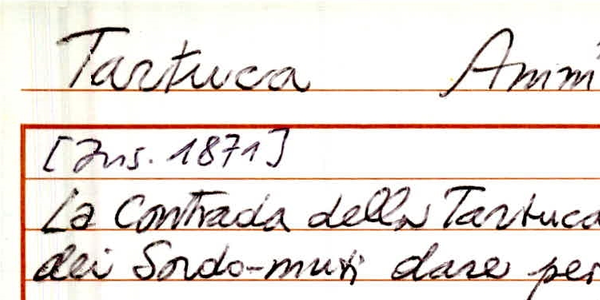 Tartuca Amm
[Ins. 1871]
La Contrada della Tartuca
dei Sordo-muti dare per